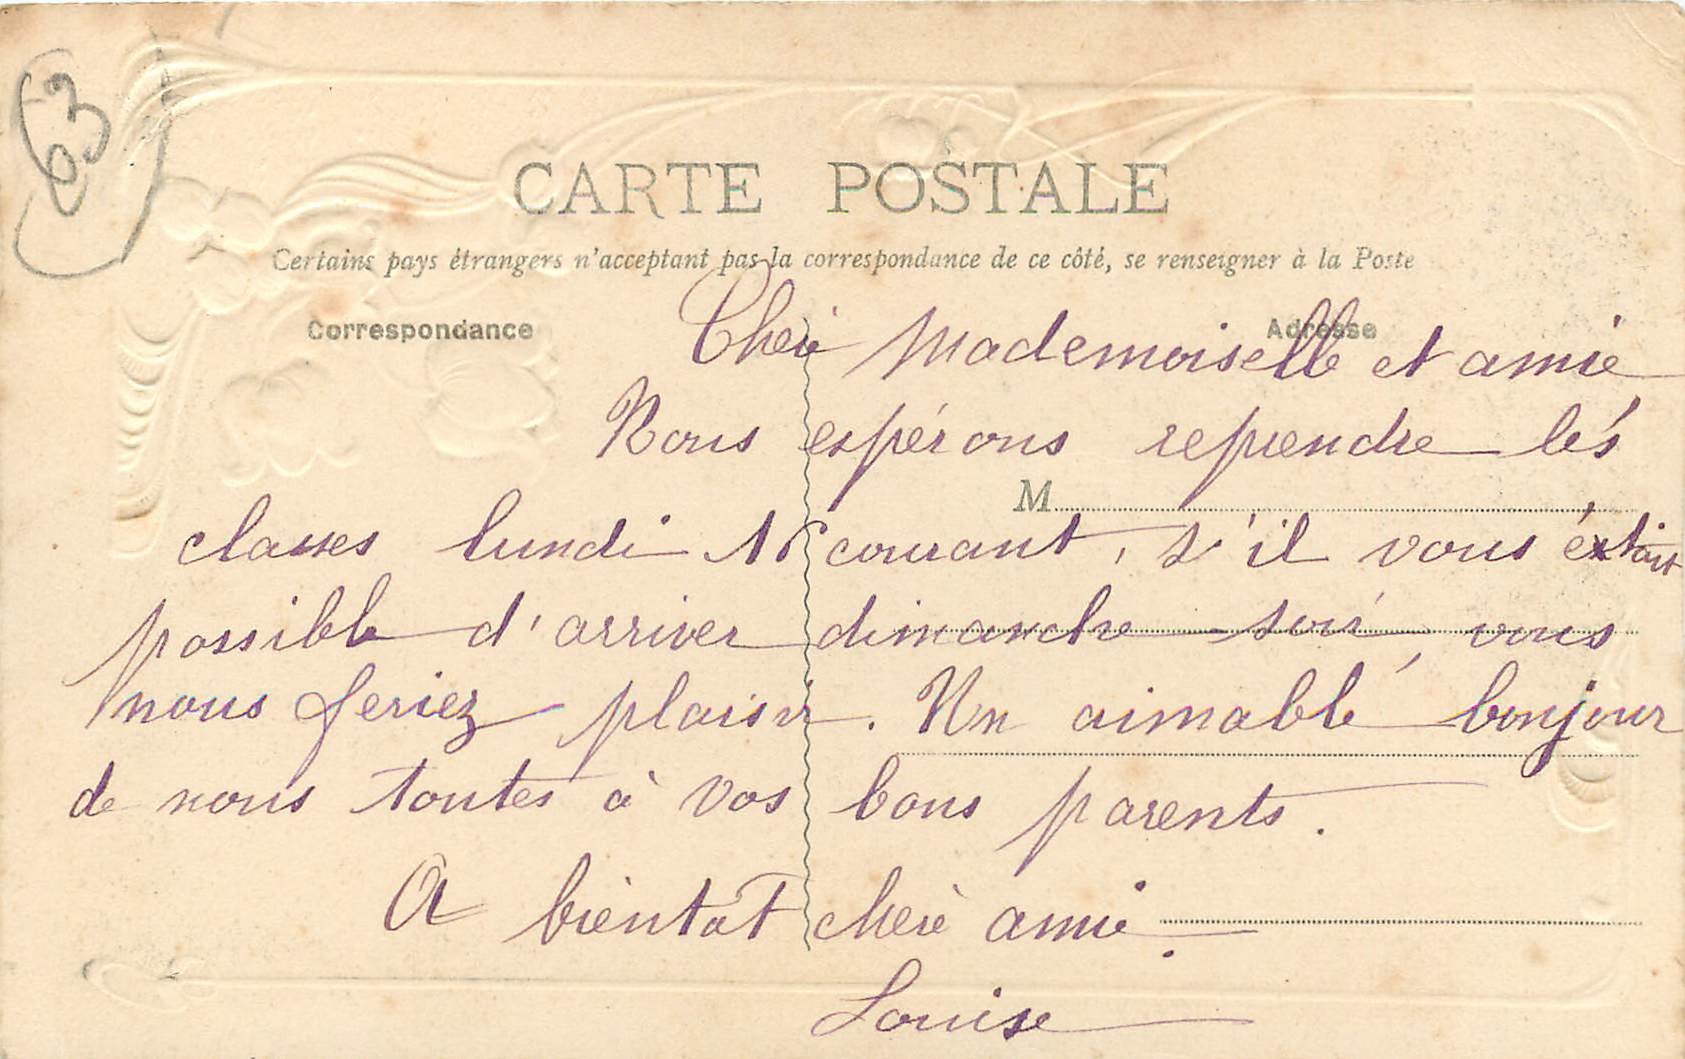 63
CARTE POSTALE
Certains pays étrangers n'acceptant pas la correspondance de ce côté, se renseigner à la Poste
Correspondance
Adresse
Chère Mademoiselle et amie
Nous espérons reprendre les
M
classes lundi courant, s'il vous était
possible d'arriver dimanche soir, vous
nous feriez plaisir. Un aimable bonjour
de nous toutes à vos bons parents.
A bientôt chère amie.
Louise